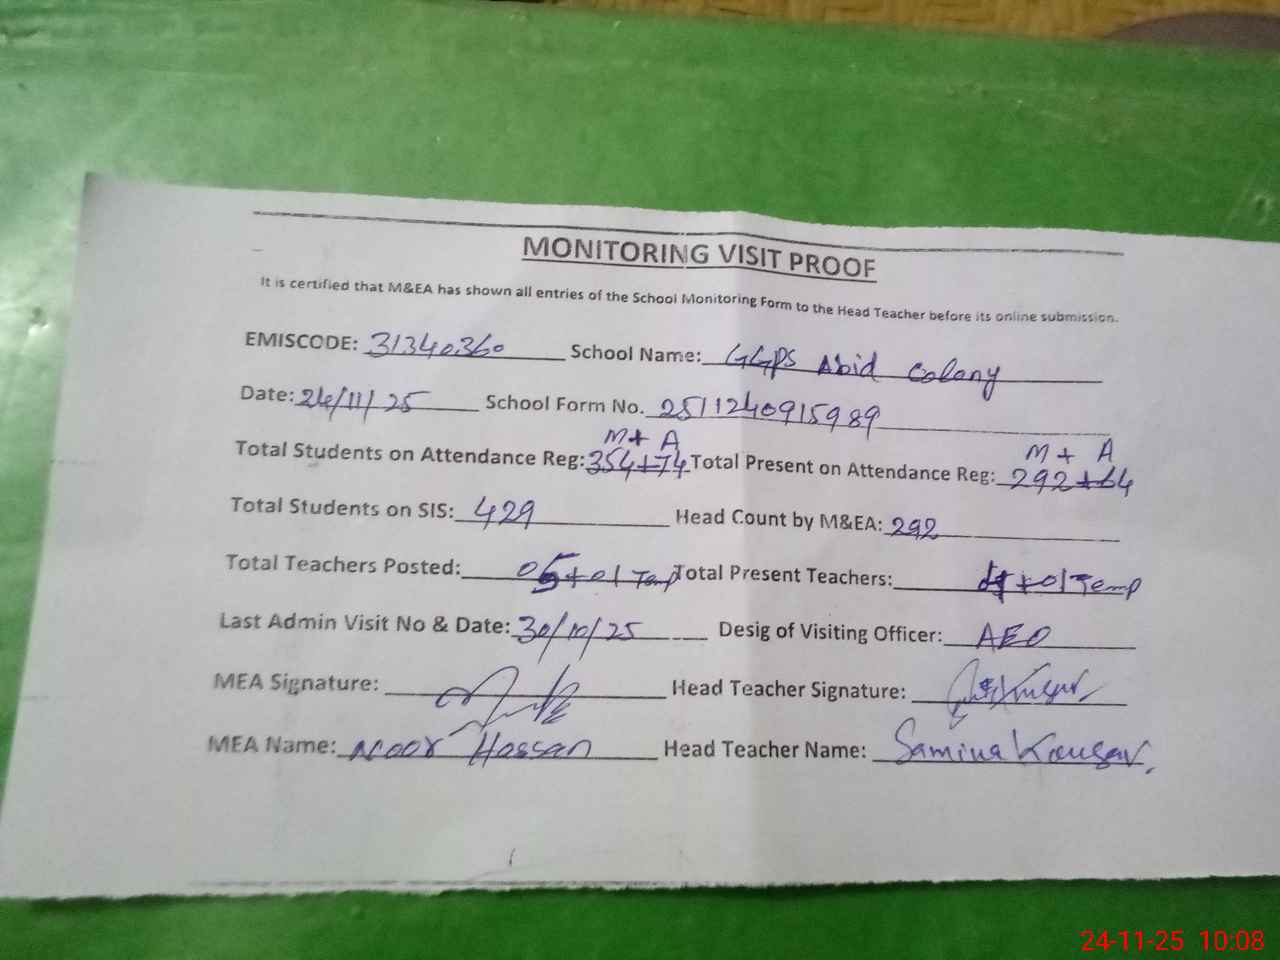 MONITORING VISIT PROOF
It is certified that M&EA has shown all entries of the School Monitoring Form to the Head Teacher before its online submission.
EMISCODE: 31340360 School Name: GGPS Abid Colony
Date: 24/11/25 School Form No. 2511240915989
M + A M + A
Total Students on Attendance Reg: 354+74 Total Present on Attendance Reg: 292+64
Total Students on SIS: 429 Head Count by M&EA: 292
Total Teachers Posted: 05+01 Temp Total Present Teachers: +01 Temp
Last Admin Visit No & Date: 30/10/25 Desig of Visiting Officer: AEO
MEA Signature: Head Teacher Signature:
MEA Name: Noor Hassan Head Teacher Name: Samina Kousar.
24-11-25 10:08